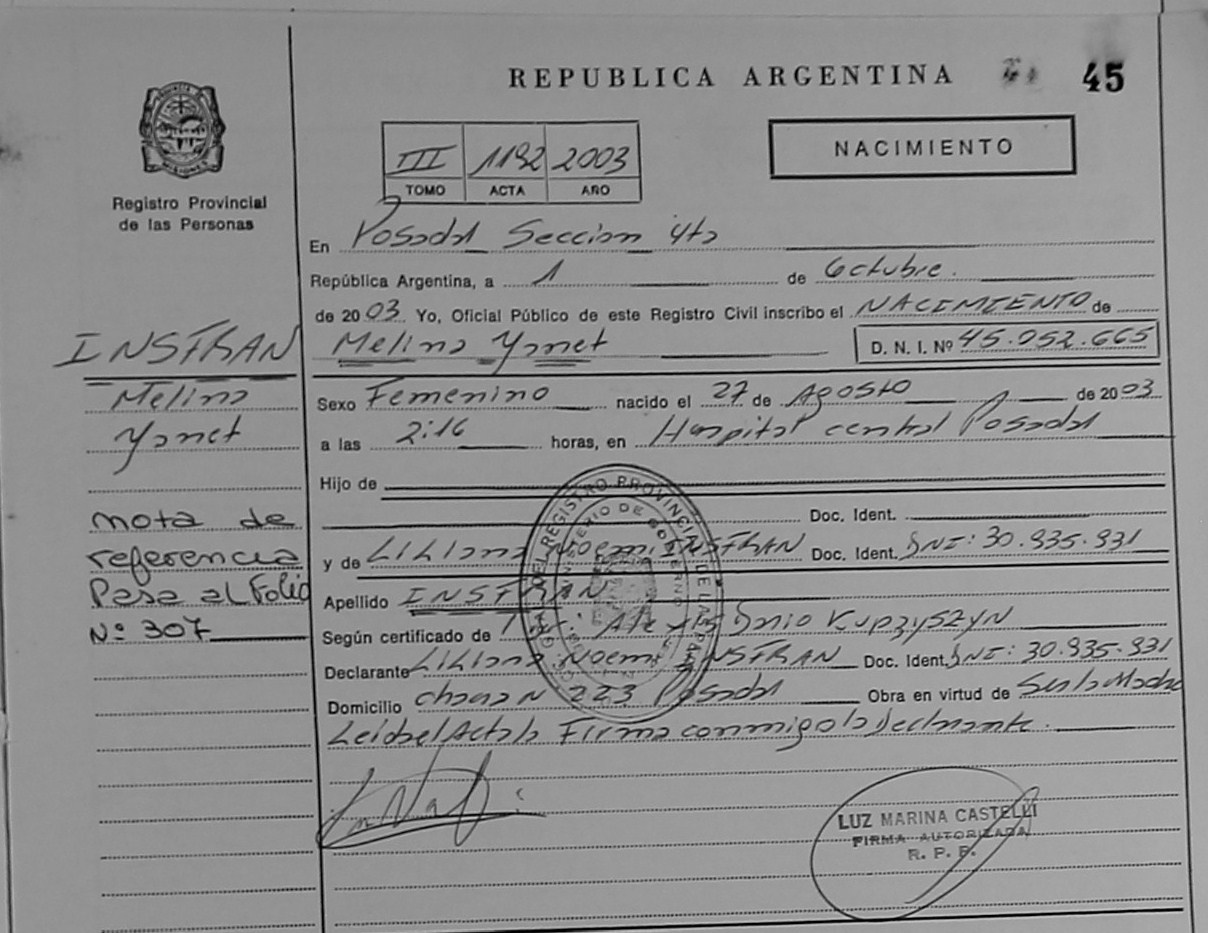 REPUBLICA ARGENTINA
45
Registro Provincial
de las Personas
III 1192 2003
TOMO ACTA AÑO
NACIMIENTO
En Posadas Seccion 4ta
República Argentina, a 1 de Octubre.
de 2003 Yo, Oficial Público de este Registro Civil inscribo el NACIMIENTO de
Melina Yanet D. N. I. Nº 45.052.665
INSFRAN
Melina
Yanet
Sexo Femenino nacido el 27 de Agosto de 2003
a las 2:16 horas, en Hospital central Posadas
Hijo de
Doc. Ident.
y de Liliana Noemi INSFRAN Doc. Ident. DNI: 30.935.931
Apellido INSFRAN
Según certificado de Kupzyszyn
Declarante Liliana Noemi INSFRAN Doc. Ident. DNI: 30.935.931
Domicilio 223 Posadas Obra en virtud de Ser la Madre
Leida el Acta la Firma conmigo la Declarante.
nota de
referencia
Pasa al Folio
Nº 307
REGISTRO PROVINCIAL DE LAS
MINISTERIO DE GOBIERNO
LUZ MARINA CASTELLI
FIRMA AUTORIZADA
R. P. P.